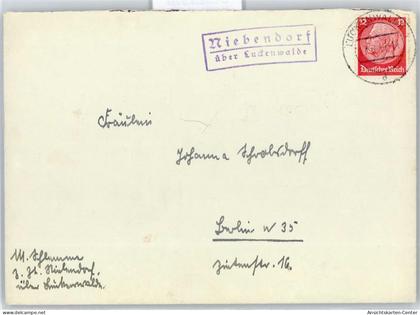 Niebendorf
über Luckenwalde
12 12
Deutsches Reich
Fräulein
Johanna Schrobsdorff
Berlin W 35
Zietenstr. 16.
M. Schlemme
z. Zt. Niebendorf,
über Luckenwalde.
www.ansichtskarten-center.de